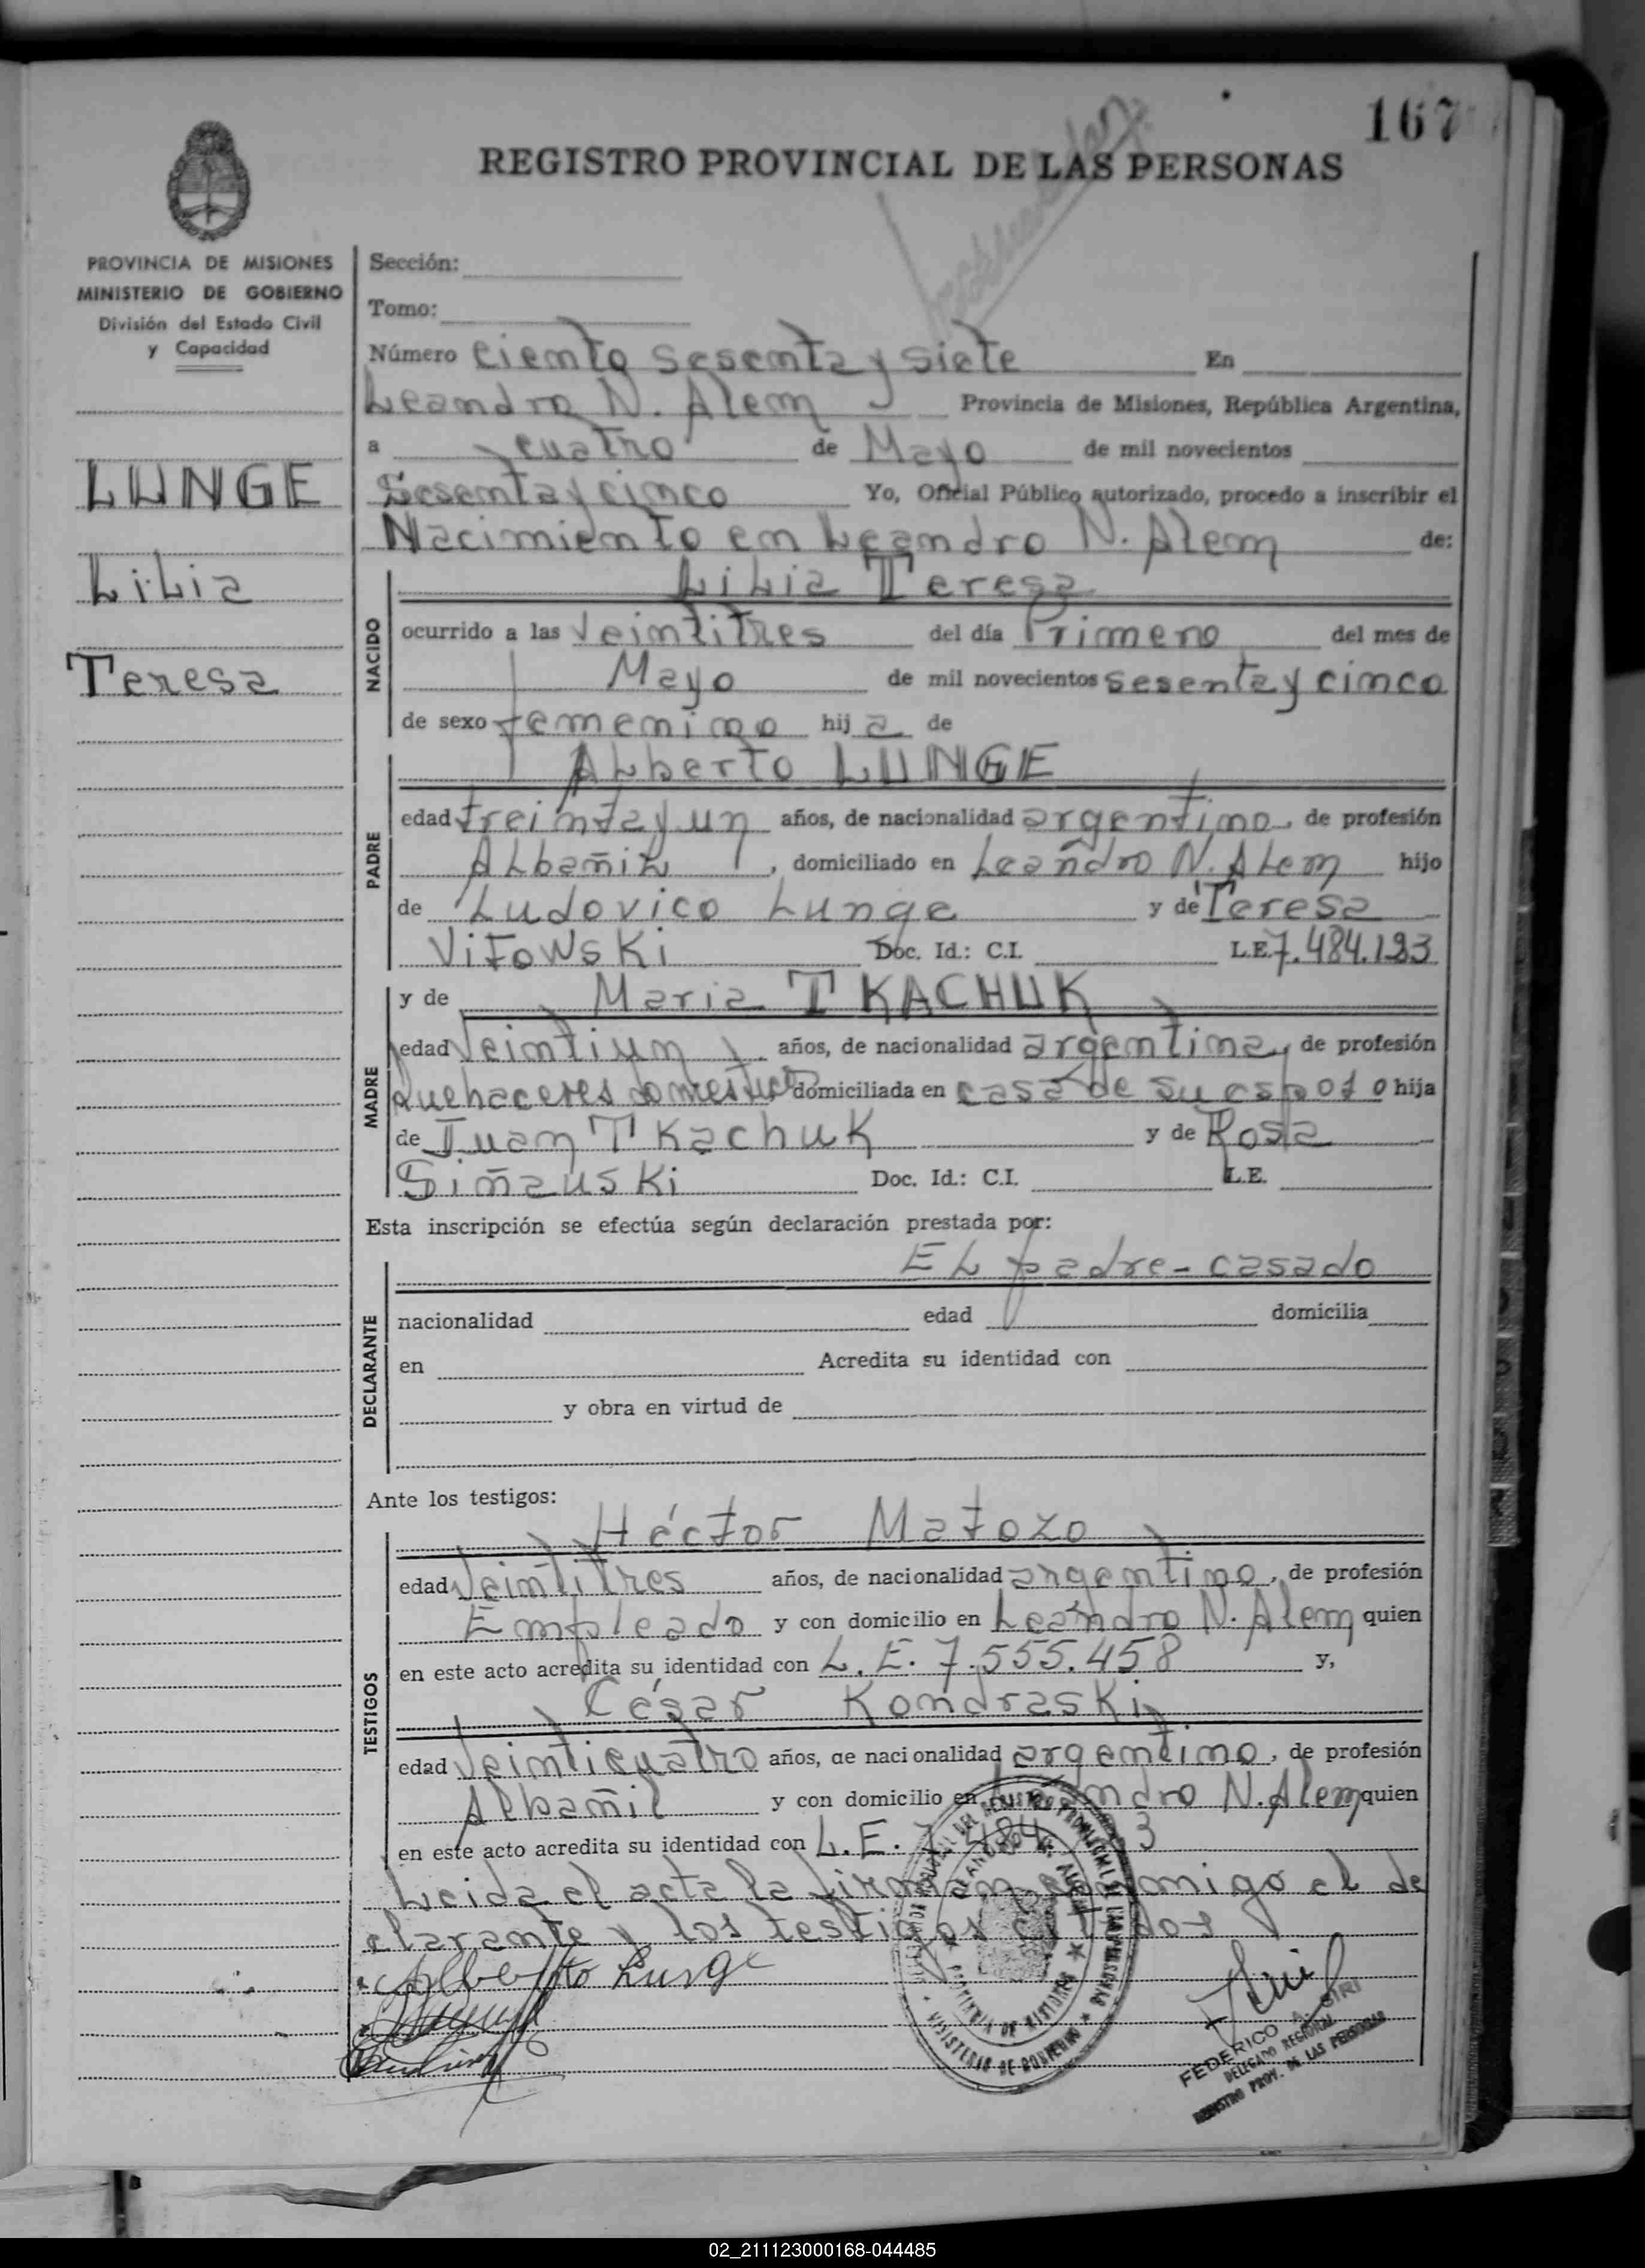 167
REGISTRO PROVINCIAL DE LAS PERSONAS
PROVINCIA DE MISIONES
MINISTERIO DE GOBIERNO
División del Estado Civil
y Capacidad
LUNGE
Lilia
Teresa
Sección:
Tomo:
Número ciento sesenta y siete En
Leandro N. Alem Provincia de Misiones, República Argentina,
a cuatro de Mayo de mil novecientos
Sesenta y cinco Yo, Oficial Público autorizado, procedo a inscribir el
Nacimiento en Leandro N. Alem de:
NACIDO
Lilia Teresa
ocurrido a las Veintitres del día Primero del mes de
Mayo de mil novecientos sesenta y cinco
de sexo femenino hija de
PADRE
Alberto LUNGE
edad treinta y un años, de nacionalidad argentino, de profesión
Albañil, domiciliado en Leandro N. Alem hijo
de Ludovico Lunge y de Teresa
Vitowski Doc. Id.: C.I. L.E. 7.484.193
MADRE
y de Maria TKACHUK
edad Veintiun años, de nacionalidad argentina, de profesión
quehaceres domesticos domiciliada en casa de su esposo hija
de Juan TKachuk y de Rosa
Siñauski Doc. Id.: C.I. L.E.
Esta inscripción se efectúa según declaración prestada por:
DECLARANTE
El padre - casado
nacionalidad edad domicilia
en Acredita su identidad con
y obra en virtud de
Ante los testigos:
TESTIGOS
Héctor Matozo
edad Veintitres años, de nacionalidad argentino, de profesión
Empleado y con domicilio en Leandro N. Alem quien
en este acto acredita su identidad con L.E. 7.555.458 y,
César Kondraski
edad Veinticuatro años, de nacionalidad argentino, de profesión
Albañil y con domicilio en Leandro N. Alem quien
en este acto acredita su identidad con L.E. 7.484 3
Leida el acta la firman conmigo el de
clarante y los testigos citados
Alberto Lunge
PROVINCIA DE MISIONES
MINISTERIO DE GOBIERNO
FEDERICO A. SIRI
DELEGADO REGIONAL
REGISTRO PROV. DE LAS PERSONAS
02_211123000168-044485